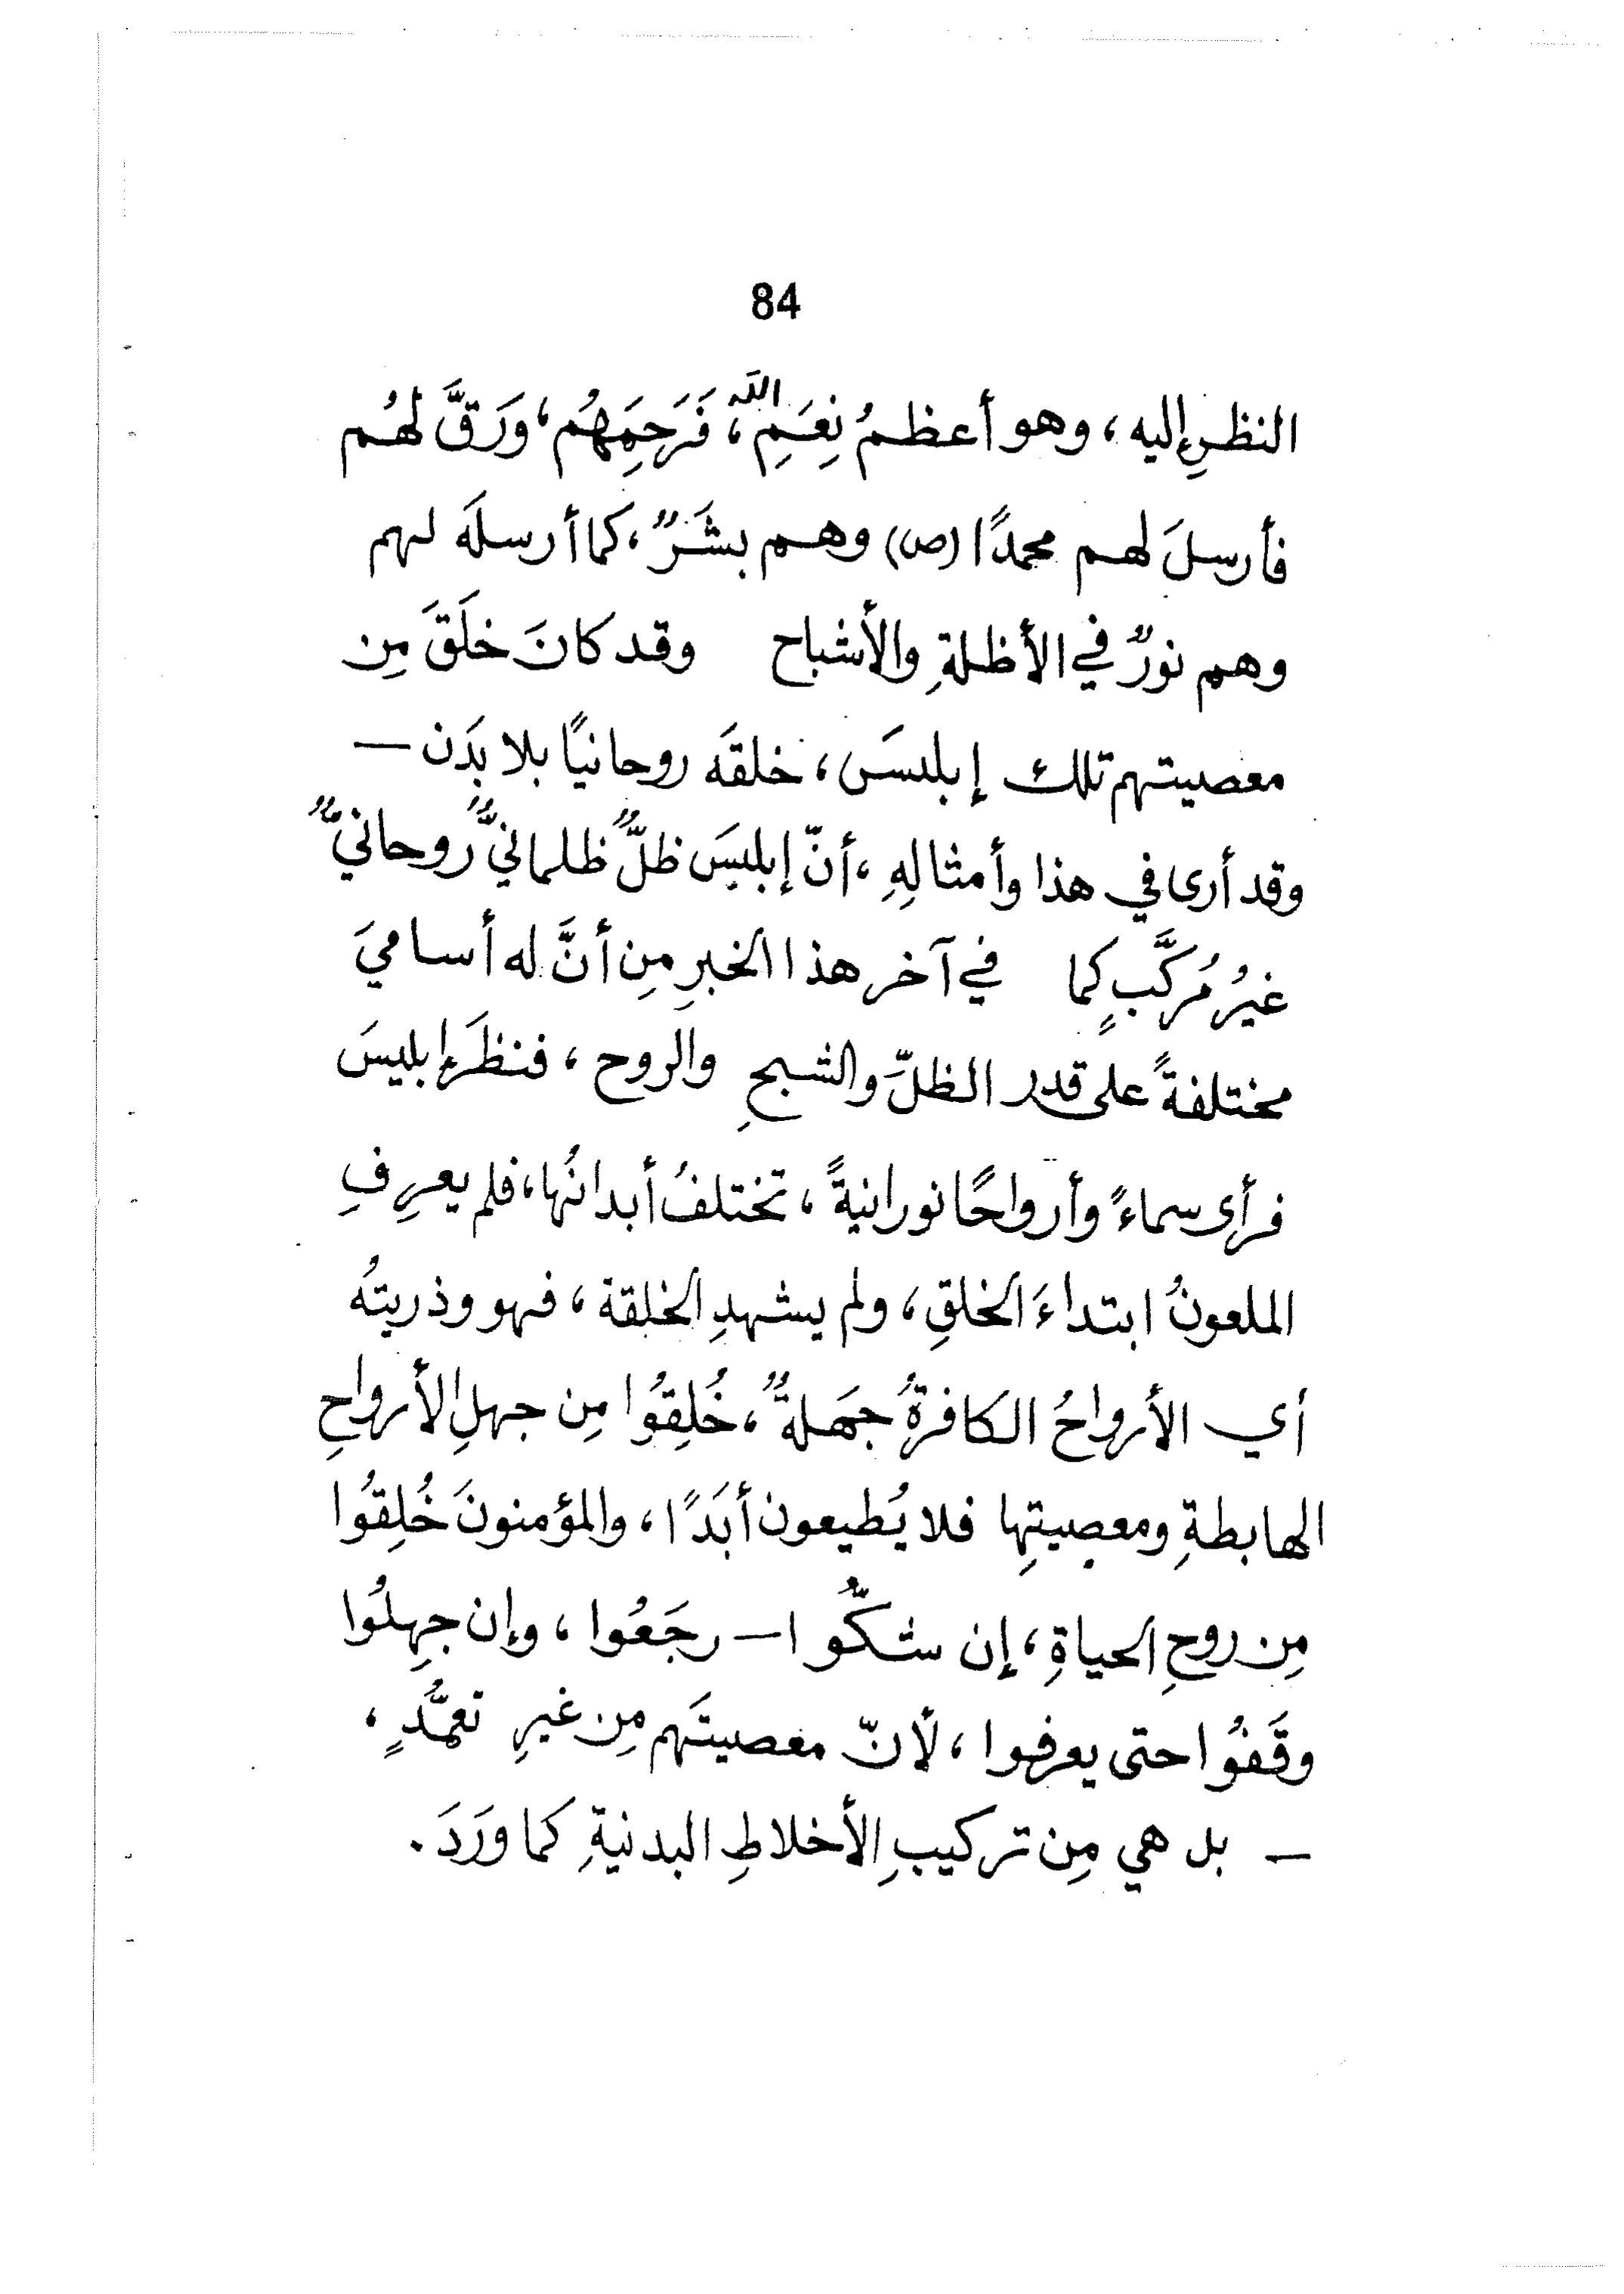 84
النظرِ إليه، وهو أعظمُ نِعَمِ الله، فَرَحِمَهُم، وَرَقَّ لهُم
فأرسلَ لهم محمدًا (ص) وهم بشَرٌ، كما أرسلَه لهم
وهم نورٌ في الأظلةِ والأشباح وقد كانَ خلَقَ مِن
معصيتهم تلك إبليسَ، خلقَه روحانيًا بلا بدَن –
وقد أرى في هذا وأمثالِهِ، أنّ إبليسَ ظلٌّ ظلمانيٌّ روحانيٌّ
غيرُ مُركَّبٍ كما في آخر هذا الخبرِ مِن أنَّ له أساميَ
مختلفةً على قدر الظلّ والشبحِ والروح، فنظَر إبليسَ
فرأى سماءً وأرواحًا نورانيةً، تختلفُ أبدانُها، فلم يعرِفِ
الملعونُ ابتداءَ الخلقِ، ولم يشهدِ الخلقة، فهو وذريتُه
أي الأرواحُ الكافرةُ جهَلةٌ، خُلِقُوا مِن جهلِ الأرواحِ
الهابطةِ ومعصيتِها فلا يُطيعون أبَدًا، والمؤمنونَ خُلِقُوا
مِن روحِ الحياةِ، إن شكُّوا – رجَعُوا، وإن جهِلُوا
وقَفُوا حتى يعرفوا، لأنّ معصيتَهم مِن غيرِ تعمُّدٍ،
– بل هي مِن تركيبِ الأخلاطِ البدنيةِ كما وَرَدَ.